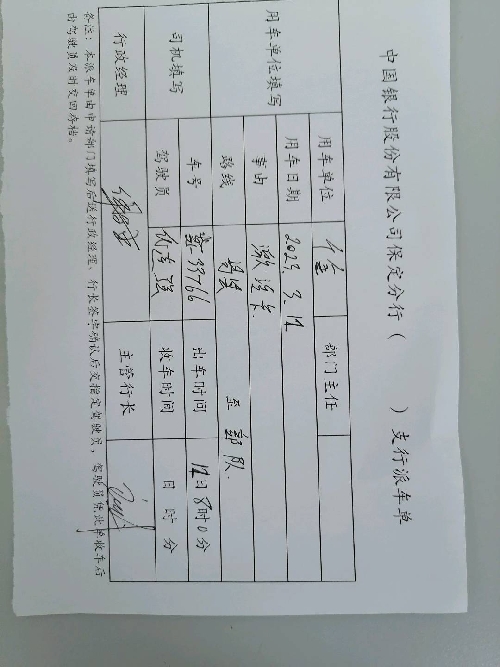 中国银行股份有限公司保定分行（ ）支行派车单
用车单位填写 用车单位 个金 部门主任
用车日期 2023. 3. 12
事由 激活卡
路线 至 部队.
司机填写 车号 33766 出车时间 12日8时0分
驾驶员 收车时间 日 时 分
行政经理 主管行长
备注：本派车单由申请部门填写后送行政经理、行长签字确认后交指定驾驶员，驾驶员凭此单收车后
由驾驶员及时交回存档。